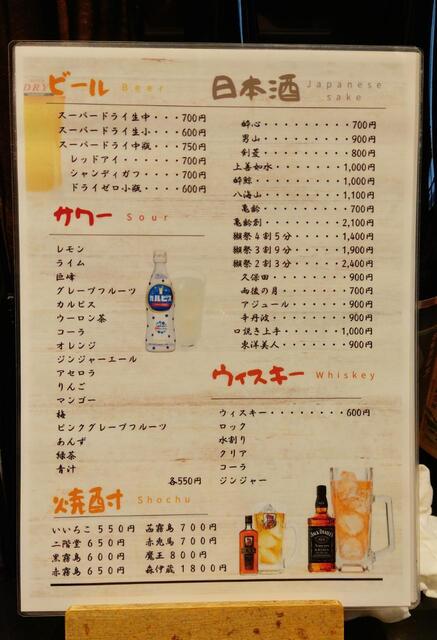 ビール Beer
スーパードライ生中・・・700円
スーパードライ生小・・・600円
スーパードライ中瓶・・・750円
レッドアイ・・・・・700円
シャンディガフ・・・・700円
ドライゼロ小瓶・・・・600円
サワー Sour
レモン
ライム
巨峰
グレープフルーツ
カルピス
ウーロン茶
コーラ
オレンジ
ジンジャーエール
アセロラ
りんご
マンゴー
梅
ピンクグレープフルーツ
あんず
緑茶
青汁
各550円
カルピス
焼酎 Shochu
いいちこ 550円 茜霧島 700円
二階堂 650円 赤兎馬 700円
黒霧島 600円 魔王 800円
赤霧島 650円 森伊蔵 1800円
日本酒 Japanese sake
酔心・・・・・・・・・700円
男山・・・・・・・・・900円
剣菱・・・・・・・・・800円
上善如水・・・・・・・1,000円
酔鯨・・・・・・・・・1,000円
八海山・・・・・・・・1,100円
亀齢・・・・・・・・・700円
亀齢創・・・・・・・・2,100円
獺祭4割5分・・・・・1,400円
獺祭3割9分・・・・・1,900円
獺祭2割3分・・・・・2,400円
久保田・・・・・・・・900円
雨後の月・・・・・・・700円
アジュール・・・・・・900円
辛丹波・・・・・・・・900円
口説き上手・・・・・・1,000円
東洋美人・・・・・・・900円
ウィスキー Whiskey
ウィスキー・・・・・・・・600円
ロック
水割り
クリア
コーラ
ジンジャー
JACK DANIEL'S
DRY